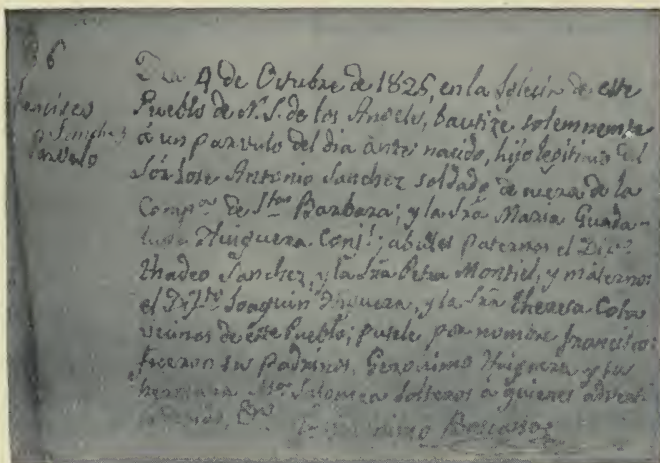 36
Francisco
Sanchez
Parvulo
Dia 4 de Octubre de 1825, en la Iglesia de este
Pueblo de N. S. de los Angeles, bautize solemnemte
a un parvulo del dia ante nacido, hijo legitimo del
Sor. Jose Antonio Sanchez soldado de cuera de la
Compa. de Sta. Barbara; y la Sra. Maria Guada-
lupe Huiguera Conjs.; abuelos paternos el
thadeo Sanchez, y la Sra. Petra Montiel, y maternos
el Joaquin Higuera, y la Sra. theresa Cota
vecinos de este Pueblo; pusele por nombre francisco:
fueron sus padrinos, Geronimo Huiguera y su
hermana Ma. Salomea solteros a quienes adverti
Boscana